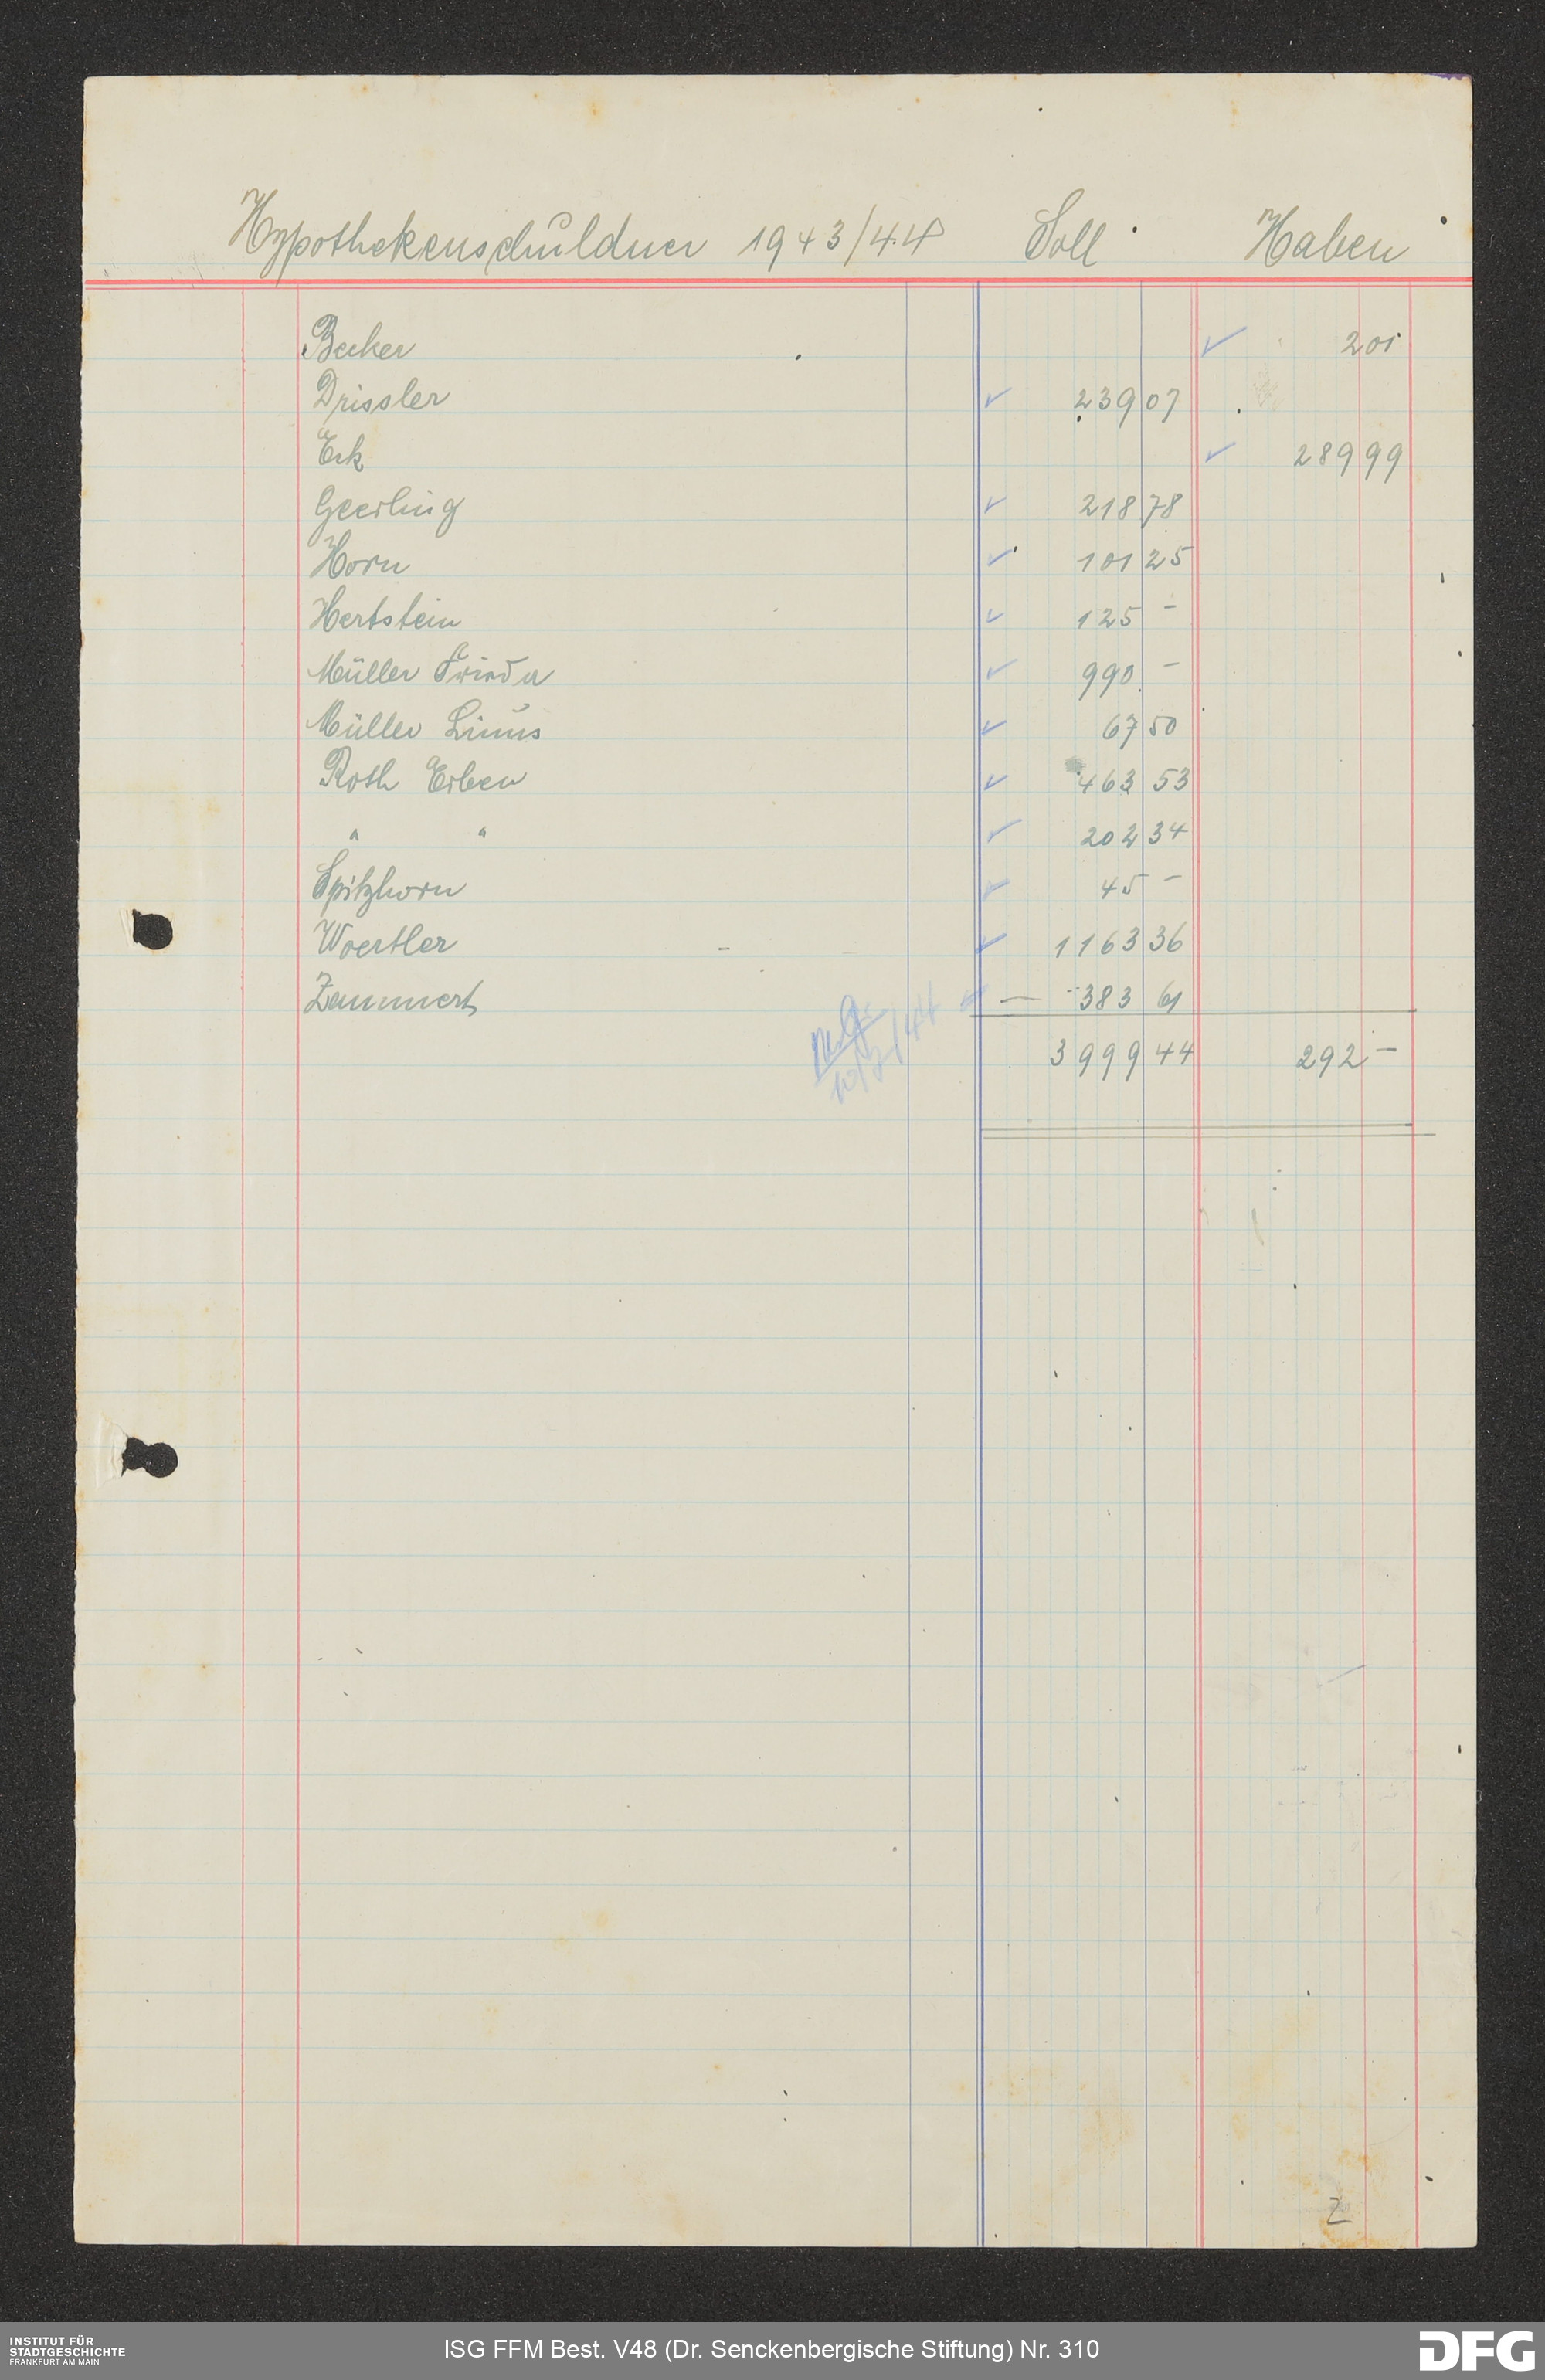 Hypothekenschuldner 1943/44 Soll Haben
Becker 2 01
Drissler 239 07
Erk 289 99
Geerling 218 78
Horn 101 25
Hertstein 125 -
Müller Frieda 990 -
Müller Linus 67 50
Roth Erben 463 53
" " 202 34
Spitzhorn 45 -
Woertler 1163 36
Zammert 383 61
3999 44 292 -
10/7/44
2
INSTITUT FÜR
STADTGESCHICHTE
FRANKFURT AM MAIN
ISG FFM Best. V48 (Dr. Senckenbergische Stiftung) Nr. 310
DFG